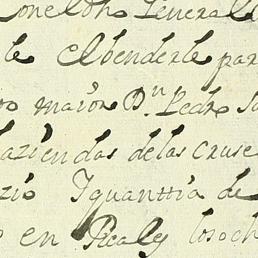 Conel Dn General
te el benderle par
maior Dn Pedro Sa
haziendas de las cruse
zio Iquanttia de
en Reales los och